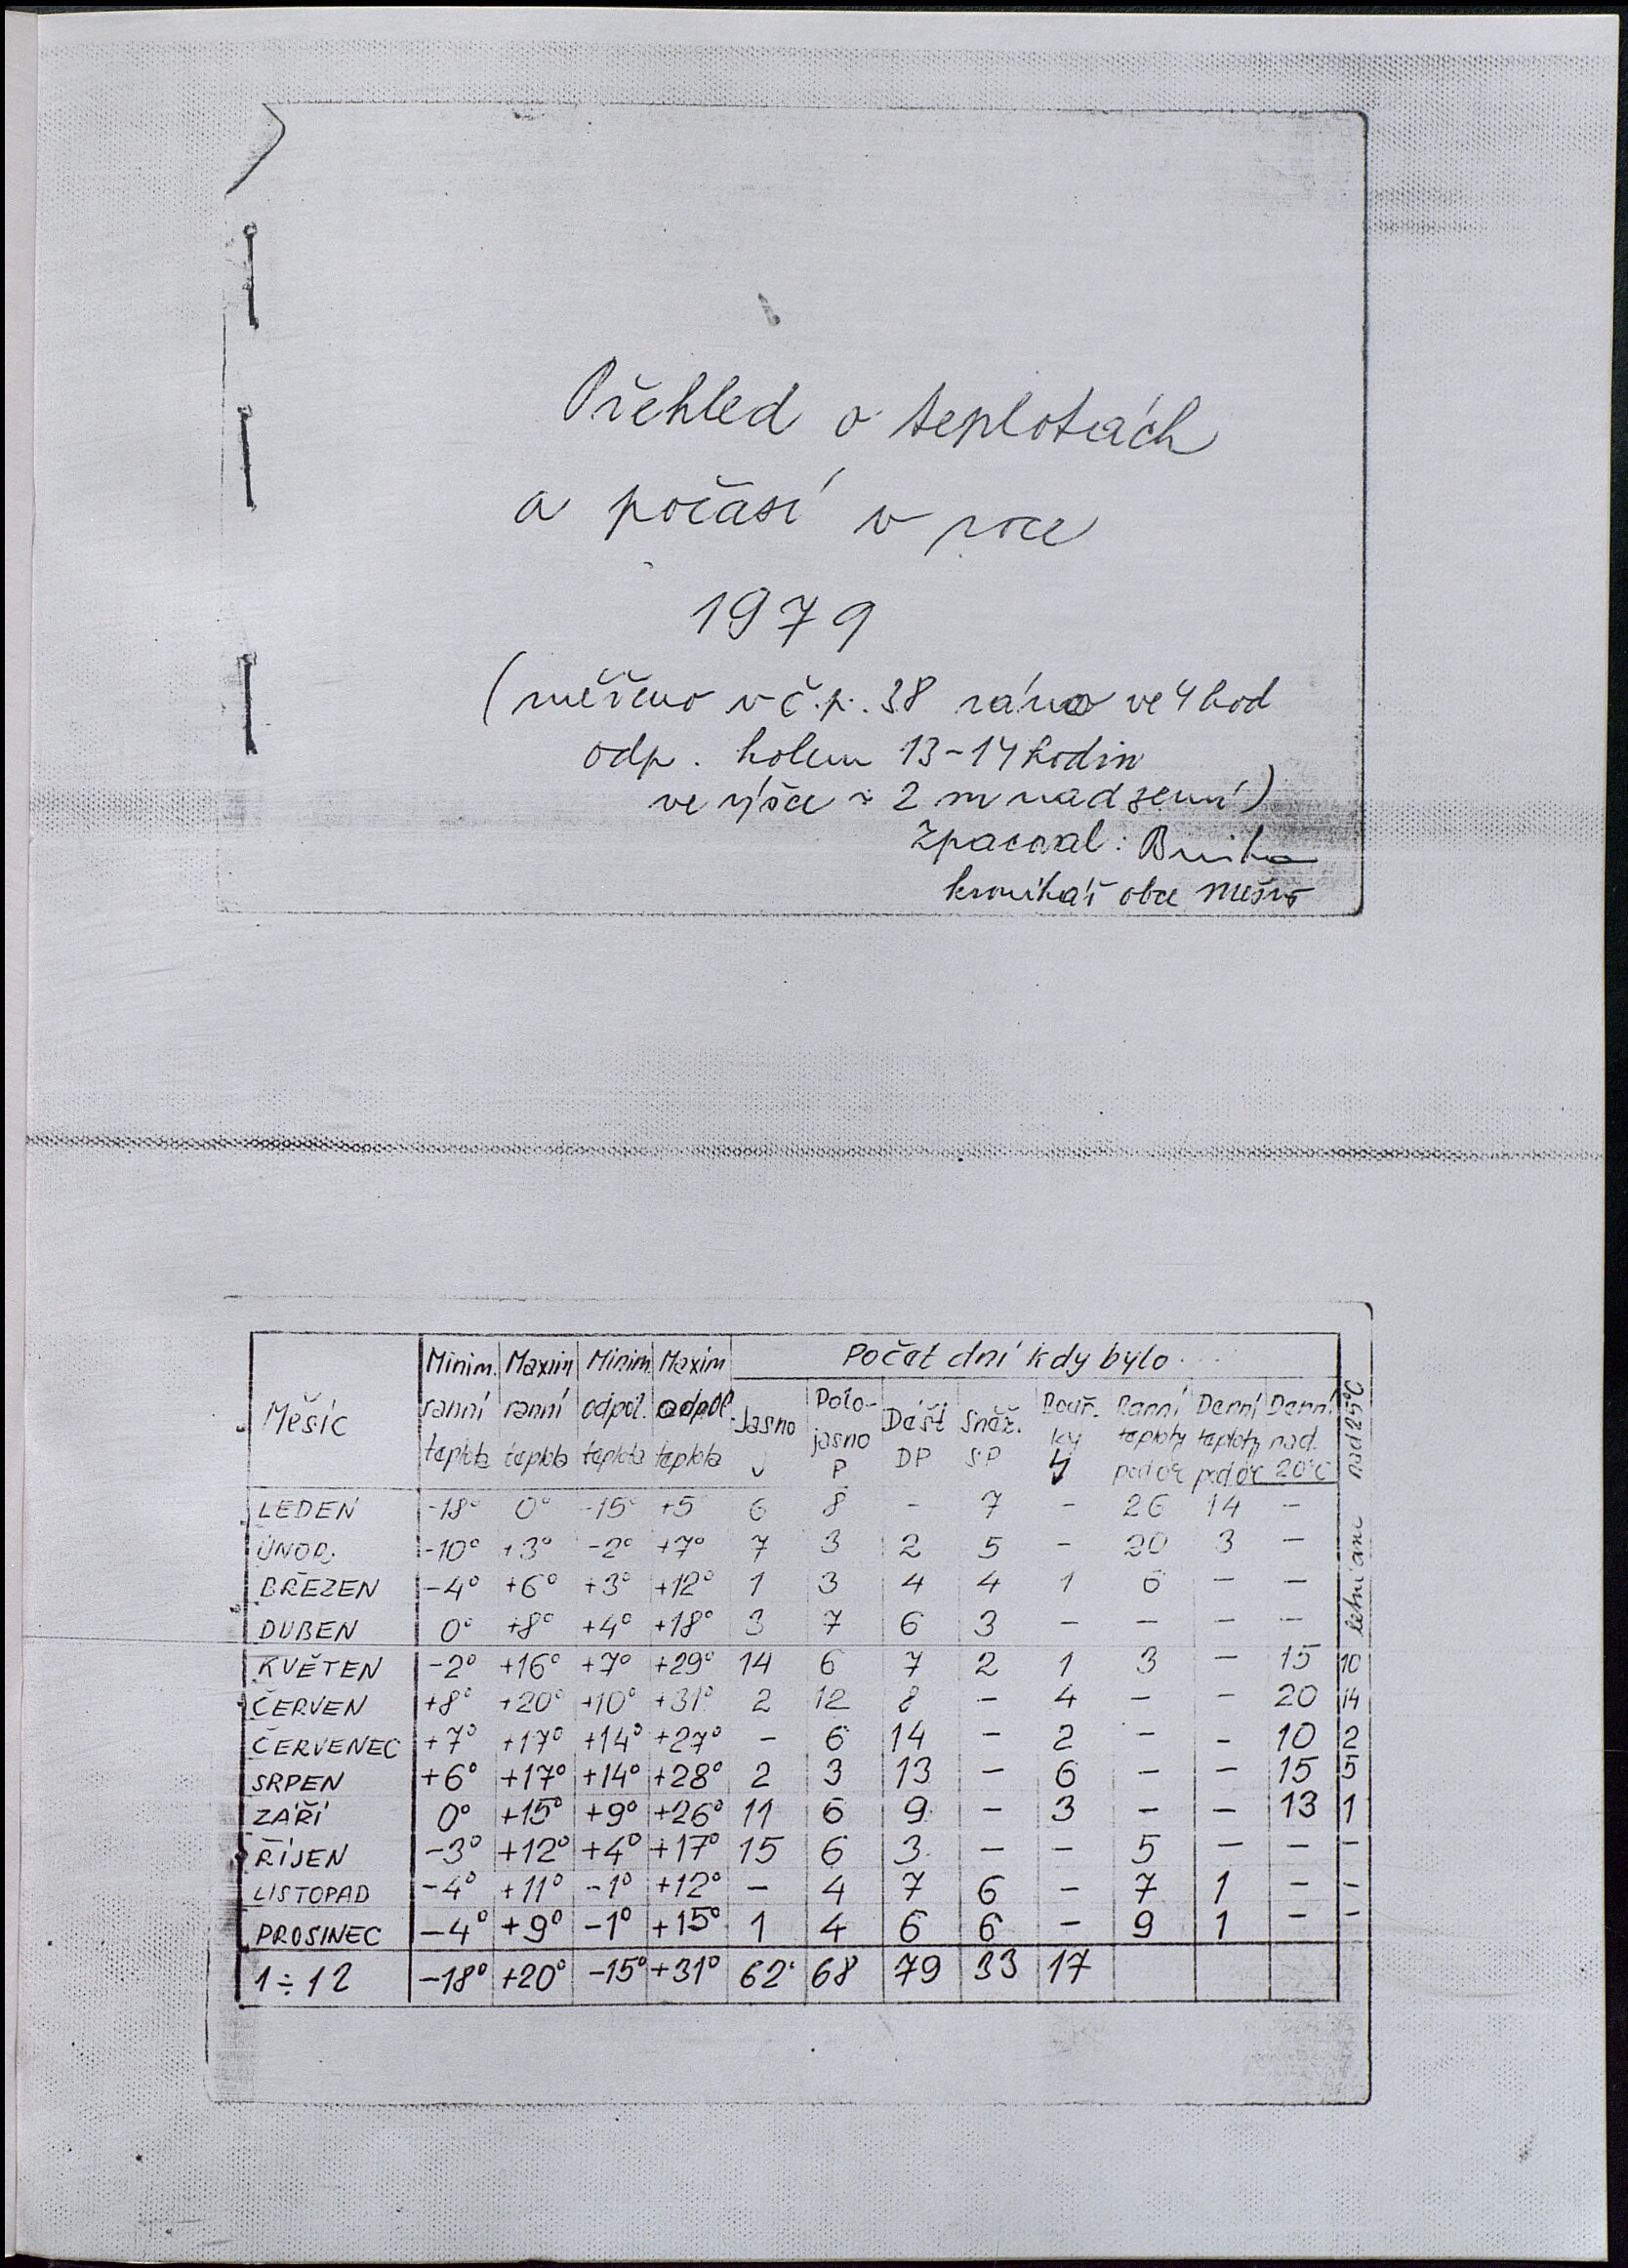 Přehled o teplotách
a počasí v roce
1979
(měřeno v č.p. 38 ráno ve 4 hod
odp. kolem 13-14 hodin
ve výšce ≈ 2 m nad zemí)
Zpracoval:
kronikář obce
Měsíc | Minim. ranní teplota | Maxim ranní teplota | Minim. odpol. teplota | Maxim odpol. teplota | Počet dní kdy bylo
Jasno J | Polojasno P | Déšť DP | Sněž. SP | Bouř. ky | Ranní teploty pod 0°C | Denní teploty pod 0°C | Denní nad. 20°C | letní dni nad 25°C
LEDEN -18° 0° -15° +5 6 8 - 7 - 26 14 -
ÚNOR. -10° +3° -2° +7° 7 3 2 5 - 20 3 -
BŘEZEN -4° +6° +3° +12° 1 3 4 4 1 6 - -
DUBEN 0° +8° +4° +18° 3 7 6 3 - - - -
KVĚTEN -2° +16° +7° +29° 14 6 7 2 1 3 - 15 10
ČERVEN +8° +20° +10° +31° 2 12 8 - 4 - - 20 14
ČERVENEC +7° +17° +14° +27° - 6 14 - 2 - - 10 2
SRPEN +6° +17° +14° +28° 2 3 13 - 6 - - 15 5
ZÁŘÍ 0° +15° +9° +26° 11 6 9 - 3 - - 13 1
ŘÍJEN -3° +12° +4° +17° 15 6 3 - - 5 - - -
LISTOPAD -4° +11° -1° +12° - 4 7 6 - 7 1 - -
PROSINEC -4° +9° -1° +15° 1 4 6 6 - 9 1 - -
1÷12 -18° +20° -15° +31° 62 68 79 33 17